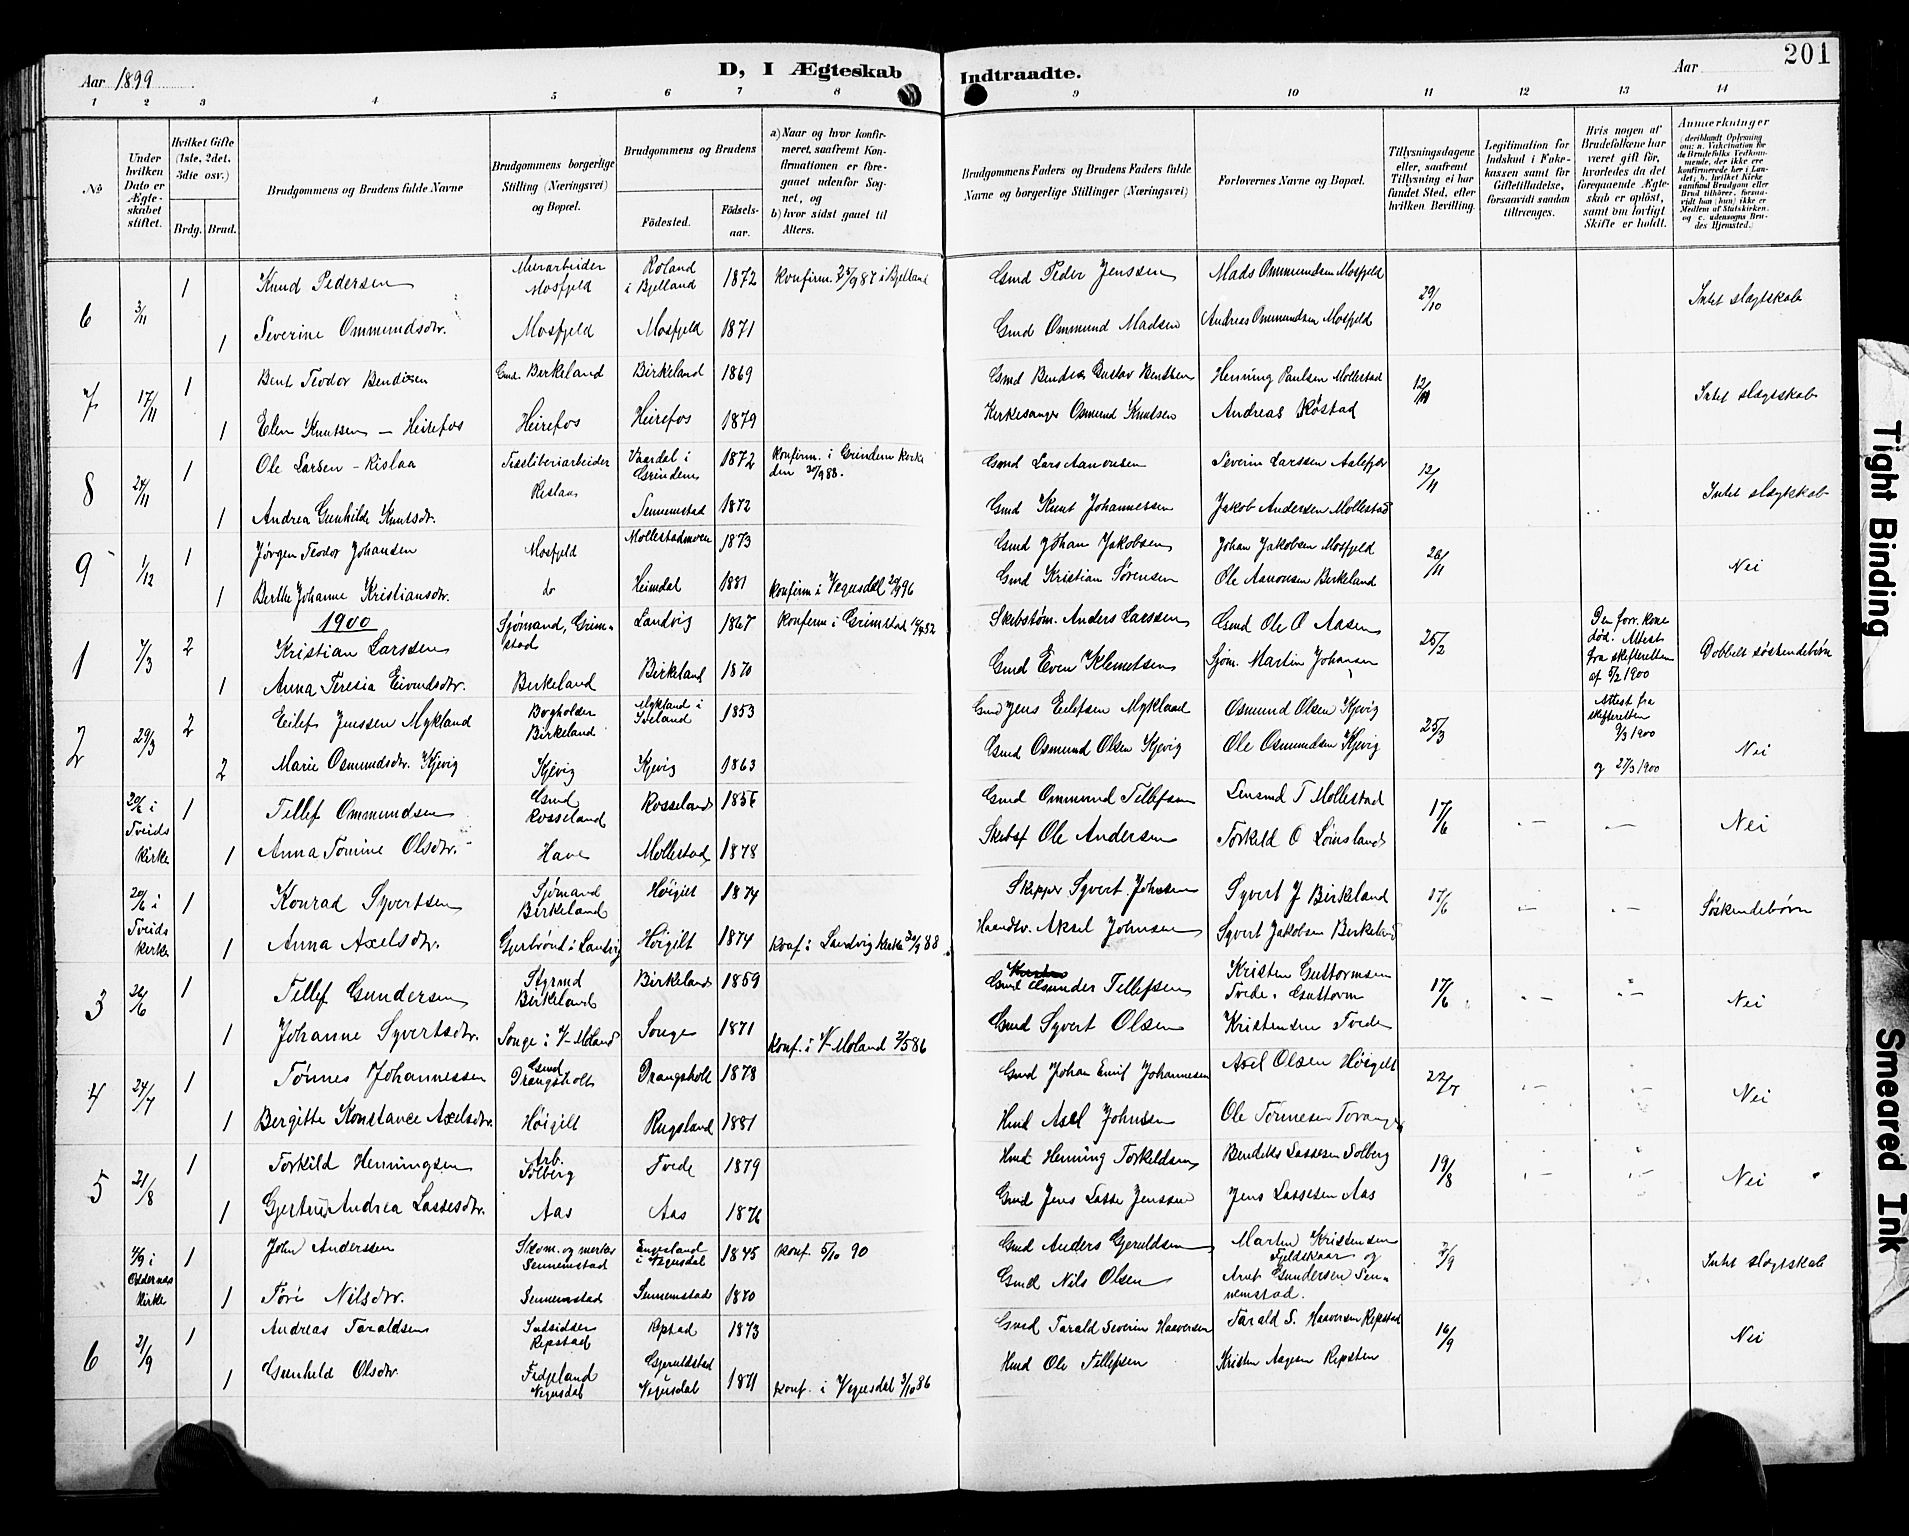 Aar 1899
D, I Ægteskab Indtraadte.
Aar
201
1 2 3 4 5 6 7 8 9 10 11 12 13 14
No
Under hvilken Dato er Ægteskabet stiftet.
Hvilket Gifte (1ste, 2det, 3die osv.)
Brdg. Brud.
Brudgommens og Brudens fulde Navne
Brudgommens borgerlige Stilling (Næringsvei) og Bopæl.
Brudgommens og Brudens
Födested.
Födselsaar.
a) Naar og hvor konfirmeret, saafremt Konfirmationen er foregaaet udenfor Sognet, og
b) hvor sidst gaaet til Alters.
Brudgommens Faders og Brudens Faders fulde Navne og borgerlige Stillinger (Næringsvei)
Forlovernes Navne og Bopæl.
Tillysningsdagene eller, saafremt Tillysning ei har fundet Sted, efter hvilken Bevilling
Legitimation for Indskud i Enkekassen samt for Giftetilladelse, forsaavidt saadan tiltrænges.
Hvis nogen af Brudefolkene har været gift för, hvorledes da det foregaaende Ægteskab er oplöst, samt om lovligt Skifte er holdt.
Anmærkninger
(deriblandt Oplysning om: a. Vakcination for de Brudefolks Vedkommende, der ikke ere konfirmerede her i Landet; b. hvilket Kirkesamfund Brudgom eller Brud tilhörer, forsaavidt han (hun) ikke er Medlem af Statskirken. og c. udensogns Brudes Hjemsted.)
6 3/11 1 Knud Pedersen Murarbeider Mosfjeld Roland i Bjelland 1872 Konfirm. 25/9 87 i Bjelland Gmd Peder Jenssen Mads Ommundsen Mosfjeld 29/10 Intet slægtskab
1 Severine Ommundsdtr. Mosfjeld Mosfjeld 1871 Gmd Ommund Madsen Andreas Ommundsen Mosfjeld
7 17/11 1 Bent Teodor Bendixen Gmd. Birkeland Birkeland 1869 Gmd Bendix Gustav Benthsen Henning Paulsen Mollestad 12/11 Intet slægtskab
1 Elen Knutsen – Heirefos Heirefos Heirefos 1879 Kirkesanger Osmund Knutsen Andreas Røstad
8 24/11 1 Ole Larsen – Rislaa Træsliberiarbeider Rislaa Vaardal i Grindem 1872 Konfirm. i Grindem Kirke den 30/9 88. Gmd Lars Aanonsen Severin Larssen Aalefjær 12/11 Intet slægtskab
1 Andrea Gunhilde Knutsdtr. Sennemstad 1872 Gmd Knut Johannessen Jakob Andersen Mollestad
9 1/12 1 Jørgen Teodor Johansen Mosfjeld Mollestadmoen 1873 Gmd Johan Jakobsen Johan Jakobsen Mosfjeld 26/11 Nei
1 Berthe Johanne Kristiansdtr. do Heimdal 1881 Konfirm i Vegusdal 20/9 96 Gmd Kristian Sørensen Ole Aanonsen Birkeland
1900
1 7/3 2 Kristian Larssen Sjømand, Grimstad Landvig 1867 Konfirm i Grimstad Skibstøm. Anders Larssen Gmd Ole O Aasen 25/2 Den forr. kone død. Attest fra skifteretten af 5/2 1900 Dobbelt søskendebørn
1 Anna Teresia Eivindsdtr. Birkeland Birkeland 1870 Gmd Even Klemetsen Sjøm. Martin Johansen
2 29/3 2 Eilef Jenssen Mykland Bogholder Birkeland Mykland i Iveland 1853 Gmd Jens Eilefsen Mykland Osmund Olsen Kjevig 25/3 Attest fra skifteretten 9/3 1900 Nei
2 Marie Osmundsdtr. Kjevig Kjevig Kjevig 1863 Gmd Osmund Olsen Kjevig Ole Osmundsen Kjevig og 27/3 1900
20/6 i Tveids Kirke 1 Tellef Ommundsen Gmd Rosseland Rosseland 1856 Gmd Ommund Tellefsen Lensmd T Mollestad 17/6 — — Nei
1 Anna Tomine Olsdtr. Have Mollestad 1878 Skibsf Ole Andersen Torkild O Lømsland
20/6 i Tveids Kirke 1 Konrad Syvertsen Sjømand Birkeland Høigilt 1874 Skipper Syvert Johnsen Syvert J Birkeland 17/6 — — Søskendebørn
1 Anna Axelsdtr. Gjerbrønd i Landvig Høigilt 1874 Konf i Landvig Kirke 30/9 88. Haandv. Aksel Johnsen Syvert Jakobsen Birkeland
3 26/6 1 Tellef Gundersen Styrmd Birkeland Birkeland 1859 Gmd Gunder Tellefsen Kristen Guttormsen Tvede. Guttorm 17/6 — — Nei
1 Johanne Syvertsdtr. Songe i V-Moland Songe 1871 Konf. i V-Moland 2/5 86 Gmd Syvert Olsen Kristensen Tvede
4 24/7 1 Tønnes Johannessen Gmd Drangsholt Drangsholt 1878 Gmd Johan Emil Johannesen Axel Olsen Høigilt 22/7 — — Nei
1 Bergitte Konstance Axelsdtr. Høigilt Rugsland 1881 Hmd Axel Johnsen Ole Tønnesen
5 21/8 1 Torkild Henningsen Arb. Solberg Tvede 1879 Hmd Henning Torkeldsen Bendiks Lassesen Solberg 19/8 — — Nei
1 Gjertrud Andrea Lassesdtr. Aas Aas 1876 Gmd Jens Lasse Jenssen Jens Lassesen Aas
4/9 i Oddernæs Kirke 1 John Anderssen Skom. og Sennemstad Engesland i Vegusdal 1845 Konf 5/10 90 Gmd Anders Gjeruldsen Martin Kristensen Fjeldskaar og 2/9 Intet slægtskab
1 Tøri Nilsdtr. Sennemstad Sennemstad 1870 Gmd Nils Olsen Arnt Gundersen Sennemstad.
6 21/9 1 Andreas Taraldsen Indsidder Repstad Repstad 1873 Gmd Tarald Severin Haaversen Tarald S. Haaversen Repstad 16/9 Nei
1 Gunhild Olsdtr. Vegusdal Gjeruldstad Vegusdal 1871 Konf. i Vegusdal 3/10 86 Hmd Ole Tellefsen Kristen Aagesen
Tight Binding
Smeared Ink